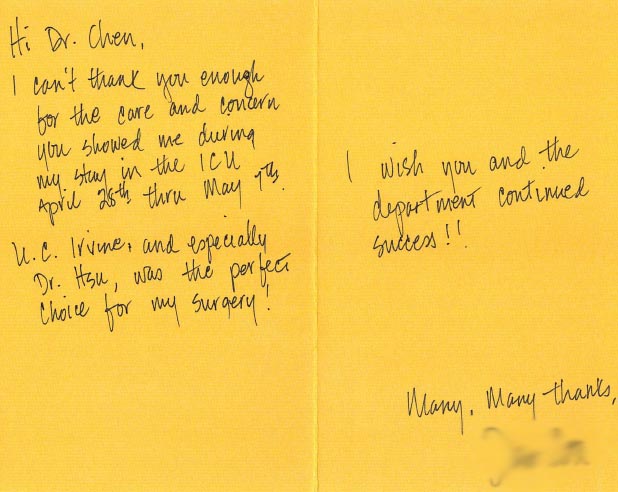 Hi Dr. Chen,
I can't thank you enough
for the care and concern
you showed me during
my stay in the ICU
April 28th thru May 7th.
U.C. Irvine, and especially
Dr. Hsu, was the perfect
choice for my surgery!
I wish you and the
department continued
success!!
Many, Many thanks,